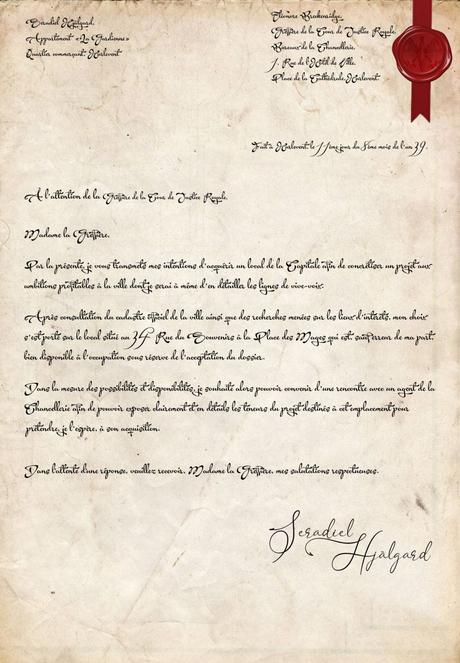 Seradiel Hjalgard.
Appartement «La Gardienne»
Quartier commerçant, Havlevent
Greffière de la Cour de Justice Royale,
Bureaux de la Chancellerie,
1, Rue de l'Hôtel de Ville,
Place de la Cathédrale,
Fait à le 11ème jour du 8ème mois de l'an 39.
A l'attention de la Greffière de la Cour de Justice Royale,
Madame la Greffière,
Par la présente, je vous transmets mes intentions d'acquérir un local de la Capitale afin de concrétiser un projet aux
ambitions profitables à la ville dont je serai à même d'en détailler les lignes de vive-voix.
Après consultation du cadastre officiel de la ville ainsi que des recherches menées sur les lieux d'intérêts, mon choix
s'est porté sur le local situé au 34 Rue du Souvenirs à la Place des Mages qui est, sauf erreur de ma part,
bien disponible à l'occupation sous réserve de l'acceptation du dossier.
Dans la mesure des possibilités et disponibilités, je souhaite alors pouvoir convenir d'une rencontre avec un agent de la
Chancellerie afin de pouvoir exposer clairement et en détails les teneurs du projet destinés à cet emplacement pour
prétendre, je l'espère, à son acquisition.
Dans l'attente d'une réponse, veuillez recevoir, Madame la Greffière, mes salutations respectueuses.
Seradiel
Hjalgard